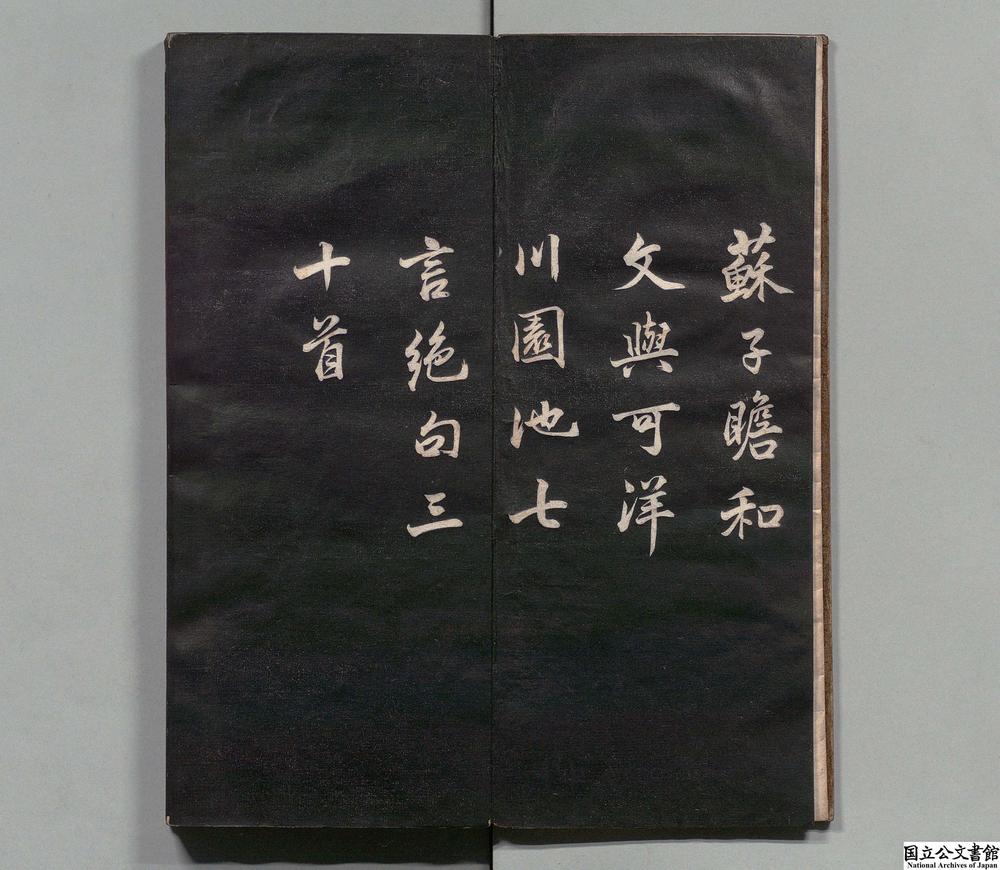 蘇子瞻和
文與可洋
川園池七
言絶句三
十首
国立公文書館
National Archives of Japan